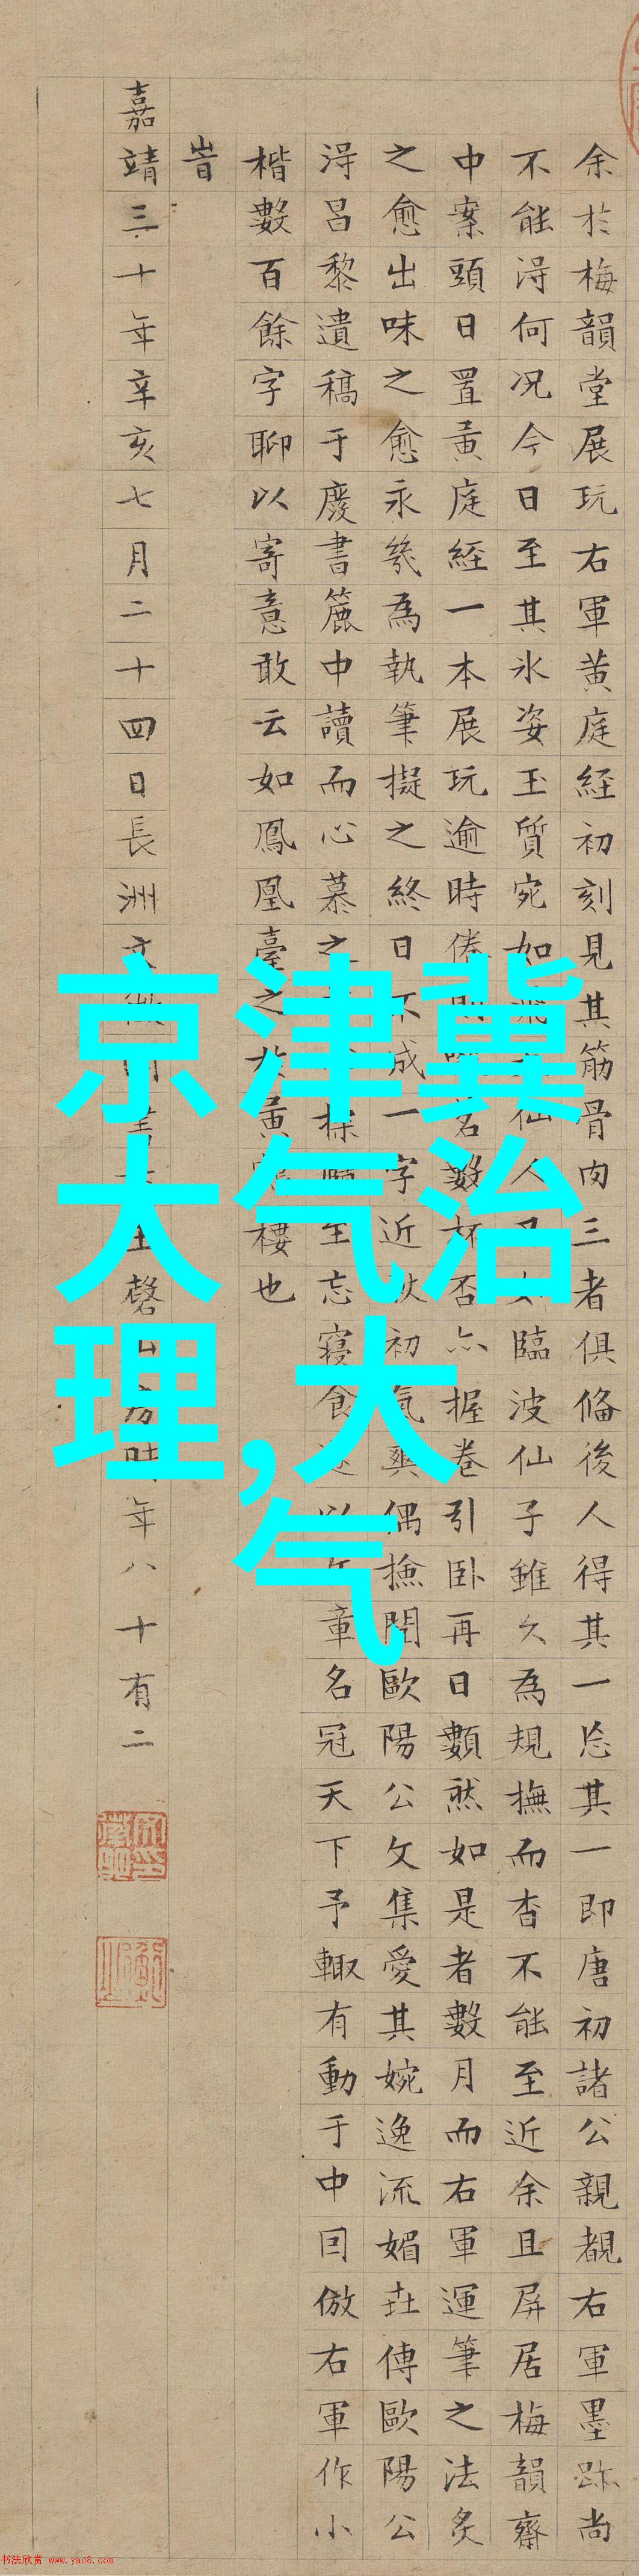 余於梅韻堂展玩右軍黃庭經初刻見其筋骨肉三者俱俻後人得其一忘其一即唐初諸公親覩右軍墨跡尚
不能淂何况今日至其氷姿玉質宛如仙人臨波仙子雖久為規撫而杳不能至近余且屏居梅韻齋
中案頭日置黃庭經一本展玩逾時倦茗數杯否亦握卷引卧再日數然如是者數月而右軍運筆之法炙
之愈出味之愈永幾為執筆擬之終日不成一字近初氣爽偶撿閱歐陽公文集愛其婉逸流媚傳歐陽公
淂昌黎遺稿于廢書簏中讀而心慕之至忘寢食遂以章名冠天下予輙有動于中囙倣右軍作小
楷數百餘字聊以寄意敢云如鳳凰臺之於黃鶴樓也
旹
嘉靖三十年辛亥七月二十四日長洲文徵明玉磬山房時年八十有二
京津冀
大气治
理,大
气
书法欣赏 www.yac8.com